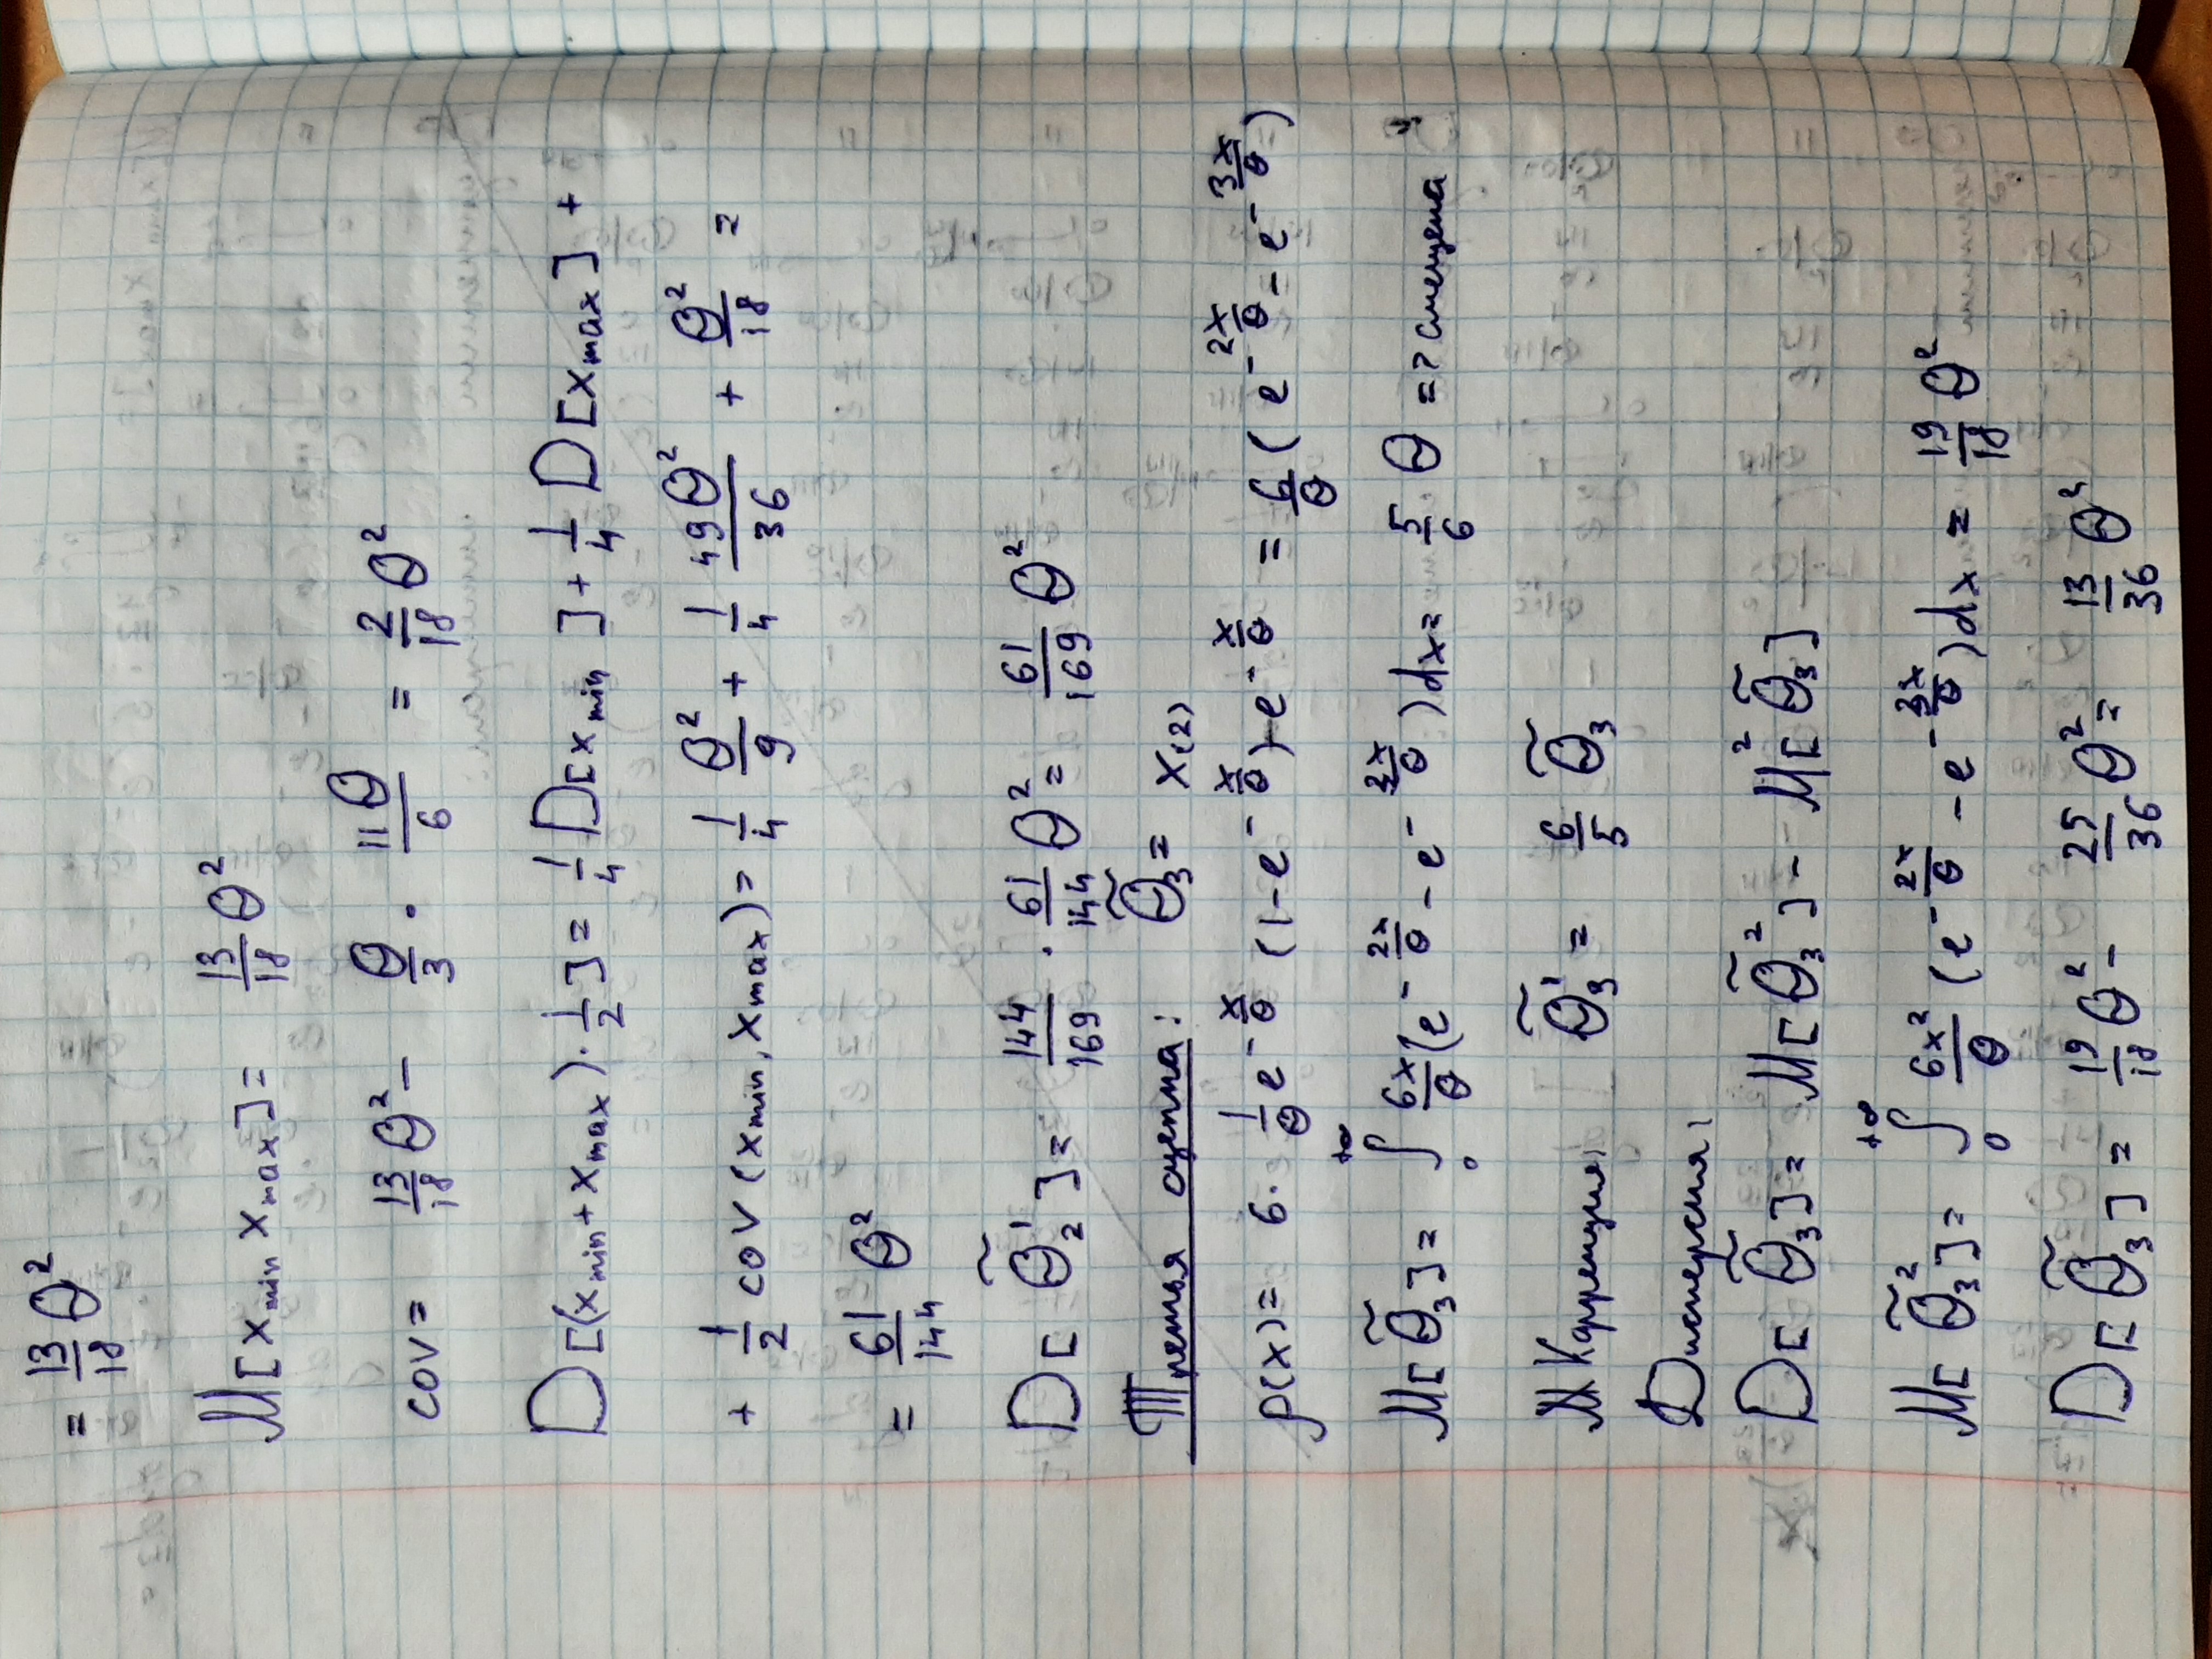 = 13/18 Θ²
M[x_min x_max] = 13/18 Θ²
cov = 13/18 Θ² - Θ/3 · 11Θ/6 = 2/18 Θ²
D[(x_min + x_max) · 1/2] = 1/4 D[x_min] + 1/4 D[x_max] +
+ 1/2 cov(x_min, x_max) = 1/4 Θ²/9 + 1/4 49Θ²/36 + Θ²/18 =
= 61/144 Θ²
D[Θ̃₂'] = 144/169 · 61/144 Θ² = 61/169 Θ²
Третья оценка: Θ̃₃ = x₍₂₎
p(x) = 6 · 1/Θ e^(-x/Θ) (1 - e^(-x/Θ)) · e^(-x/Θ) = 6/Θ (e^(-2x/Θ) - e^(-3x/Θ))
M[Θ̃₃] = ∫₀^(+∞) 6x/Θ (e^(-2x/Θ) - e^(-3x/Θ)) dx = 5/6 Θ => смещена
Коррекция: Θ̃₃' = 6/5 Θ̃₃
Дисперсия:
D[Θ̃₃] = M[Θ̃₃²] - M²[Θ̃₃]
M[Θ̃₃²] = ∫₀^(+∞) 6x²/Θ (e^(-2x/Θ) - e^(-3x/Θ)) dx = 19/18 Θ²
D[Θ̃₃] = 19/18 Θ² - 25/36 Θ² = 13/36 Θ²